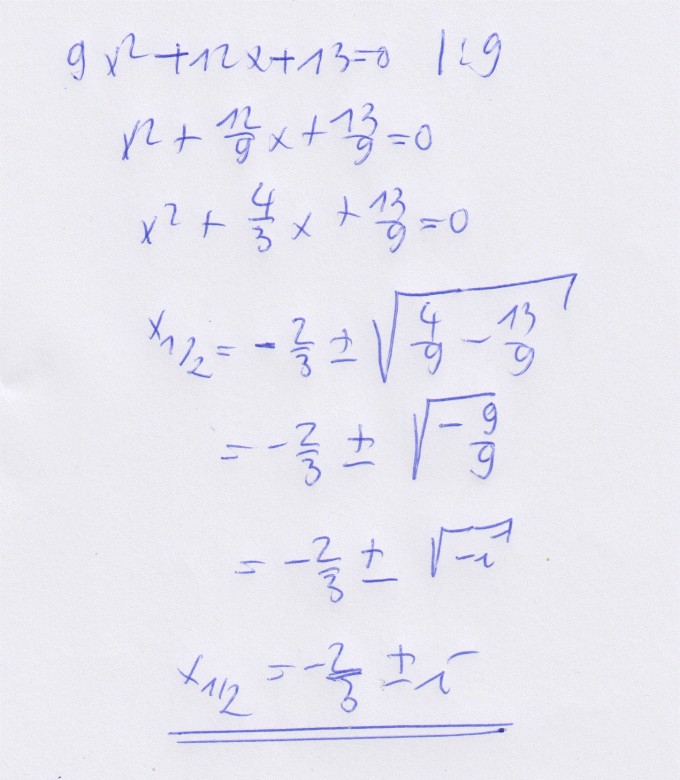 9x² + 12x + 13 = 0 | : 9
x² + 12/9 x + 13/9 = 0
x² + 4/3 x + 13/9 = 0
x₁/₂ = - 2/3 ± √(4/9 - 13/9)
= - 2/3 ± √(- 9/9)
= - 2/3 ± √(-1)
x₁/₂ = - 2/3 ± i